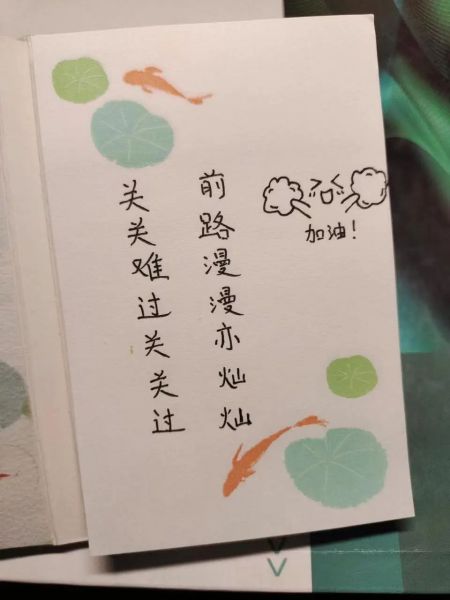 关关难过关关过
前路漫漫亦灿灿
加油!